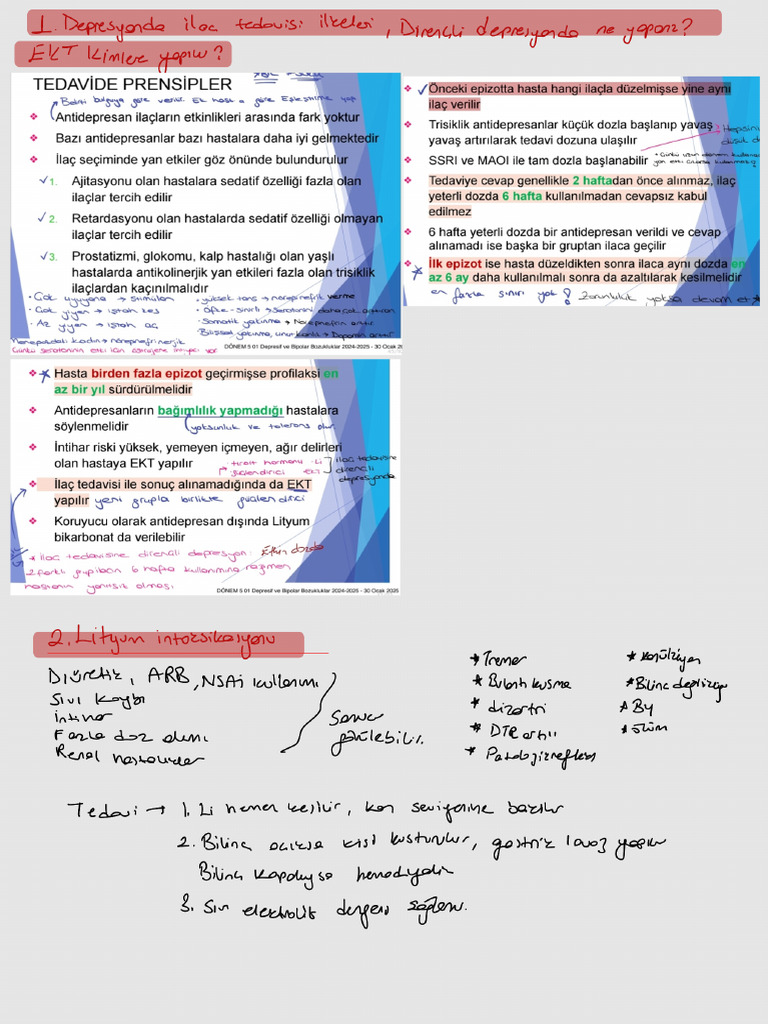 1. Depresyonda ilaç tedavisi ilkeleri, Dirençli depresyonda ne yaparız?
EKT kimlere yapılır?
TEDAVİDE PRENSİPLER
Antidepresan ilaçların etkinlikleri arasında fark yoktur
Bazı antidepresanlar bazı hastalara daha iyi gelmektedir
İlaç seçiminde yan etkiler göz önünde bulundurulur
1. Ajitasyonu olan hastalara sedatif özelliği fazla olan
ilaçlar tercih edilir
2. Retardasyonu olan hastalarda sedatif özelliği olmayan
ilaçlar tercih edilir
3. Prostatizmi, glokomu, kalp hastalığı olan yaşlı
hastalarda antikolinerjik yan etkileri fazla olan trisiklik
ilaçlardan kaçınılmalıdır
• Çok uyuyana → stimulan
• Çok yiyen → iştah kes
• Az yiyen → iştah aç
• yüksek tans → norepinefrik verme
• Öfke - sinirli → Serotonini daha çok artıran
• Somatik yakınma → Norepinefrin artır
DÖNEM 5 01 Depresif ve Bipolar Bozukluklar 2024-2025 - 30 Ocak 2025
Önceki epizotta hasta hangi ilaçla düzelmişse yine aynı
ilaç verilir
Trisiklik antidepresanlar küçük dozla başlanıp yavaş
yavaş artırılarak tedavi dozuna ulaşılır
SSRI ve MAOI ile tam dozla başlanabilir
Tedaviye cevap genellikle 2 haftadan önce alınmaz, ilaç
yeterli dozda 6 hafta kullanılmadan cevapsız kabul
edilmez
6 hafta yeterli dozda bir antidepresan verildi ve cevap
alınamadı ise başka bir gruptan ilaca geçilir
İlk epizot ise hasta düzeldikten sonra ilaca aynı dozda en
az 6 ay daha kullanılmalı sonra da azaltılarak kesilmelidir
en fazla sınırı yok! Zorunluluk yoksa devam et
Hasta birden fazla epizot geçirmişse profilaksi en
az bir yıl sürdürülmelidir
Antidepresanların bağımlılık yapmadığı hastalara
söylenmelidir
yoksunluk ve tolerans olur
İntihar riski yüksek, yemeyen içmeyen, ağır delirleri
olan hastaya EKT yapılır
tiroit hormonu Li
güçlendirici EKT
ilaç tedavisine
dirençli
depresyonda
İlaç tedavisi ile sonuç alınamadığında da EKT
yapılır yeni grupla birlikte güçlendirici
Koruyucu olarak antidepresan dışında Lityum
bikarbonat da verilebilir
* ilaç tedavisine dirençli depresyon: Etkin dozda
2 farklı grup ilacın 6 hafta kullanımına rağmen
hastanın yanıtsız olması
DÖNEM 5 01 Depresif ve Bipolar Bozukluklar 2024-2025 - 30 Ocak 2025
2. Lityum intoksikasyonu
Diüretik, ARB, NSAİ kullanımı
Sıvı kaybı
İntihar
Fazla doz alımı
Renal hastalıklar
Sonucu
görülebilir.
* Tremor
* Bulantı kusma
* dizartri
* DTR artışı
* Patolojik refleks
* Konvülziyon
* Bilinç değişikliği
* ABY
* ölüm
Tedavi → 1. Li hemen kesilir, kan seviyesine bakılır
2. Bilinç açıksa kişi kusturulur, gastrik lavaj yapılır
Bilinç kapalıysa hemodiyaliz
3. Sıvı elektrolit dengesi sağlanır.